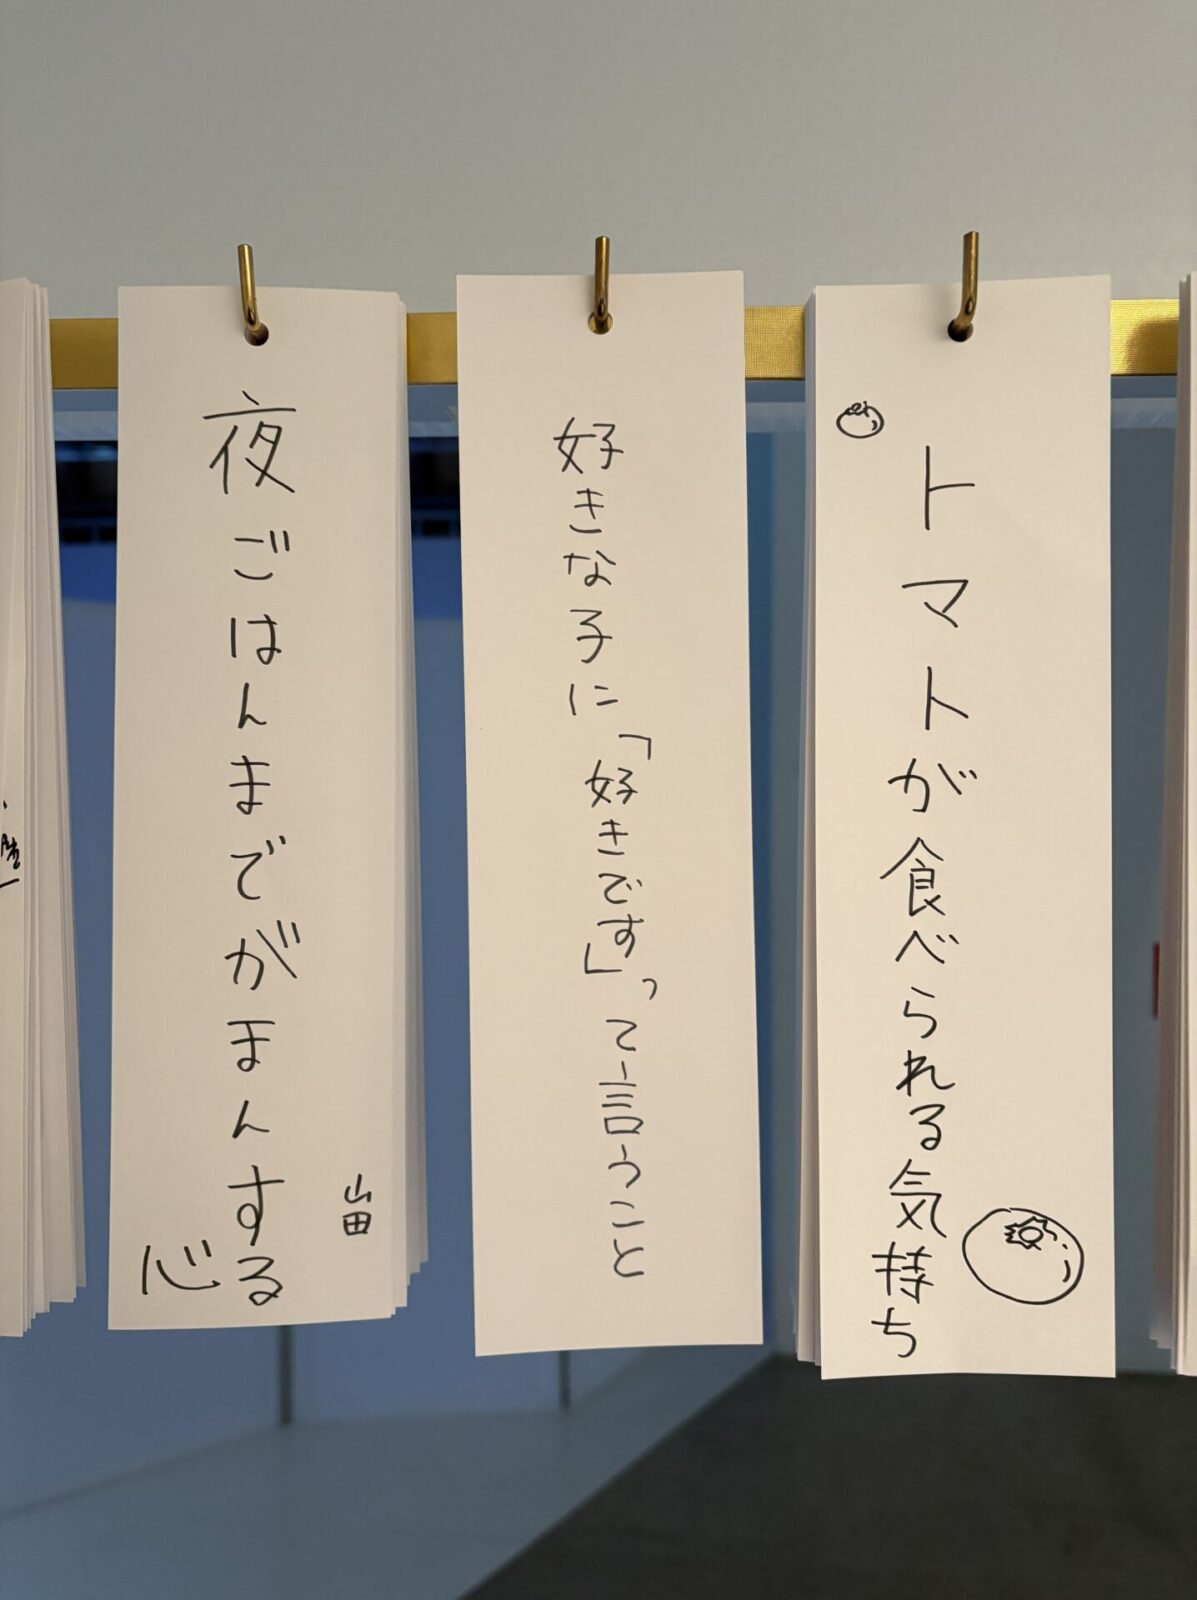 トマトが食べられる気持ち
好きな子に「好きです」って言うこと
夜ごはんまでがまんする
心
山田